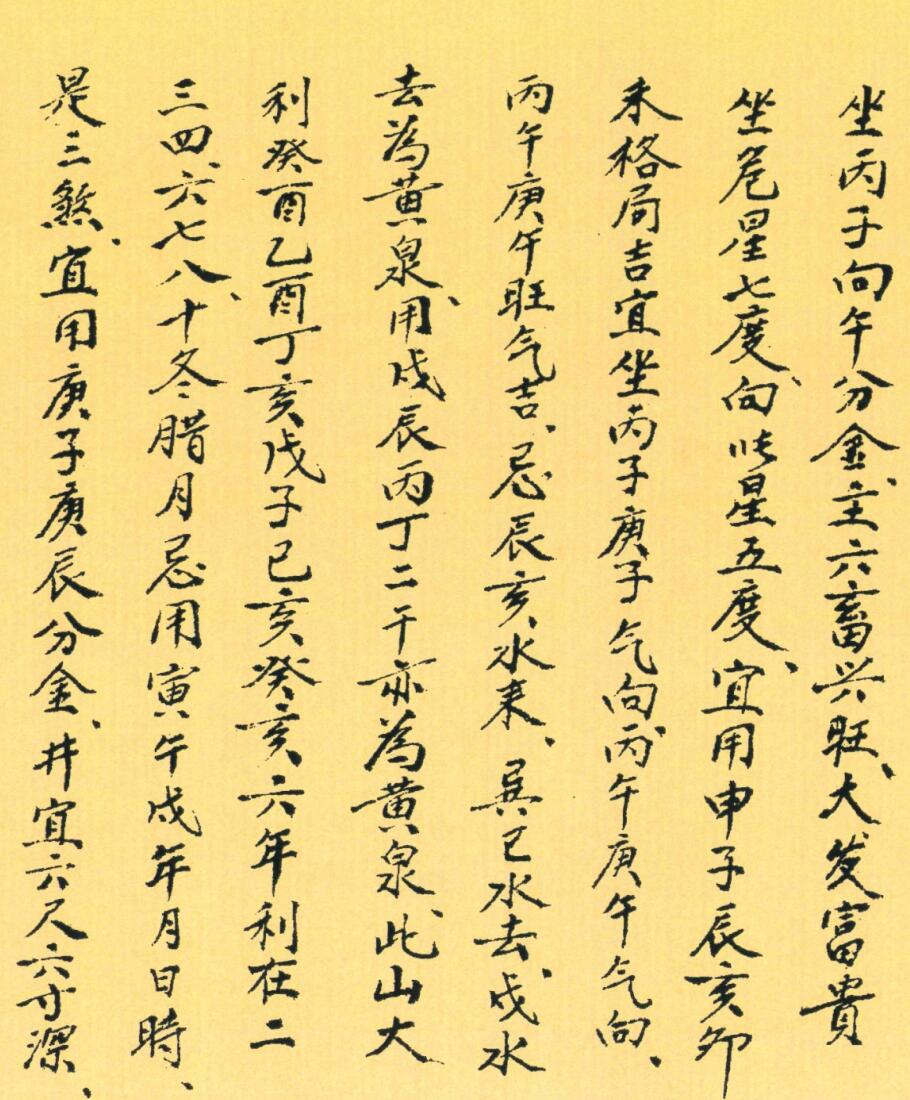 坐丙子向午分金、主六畜兴旺、大发富貴
坐危星七度、向吡星五度、宜用申子辰亥卯
未格局吉宜坐丙子庚子气向丙午庚午气向、
丙午庚午旺气吉、忌辰亥水来、巽巳水去、戌水
去為黄泉、用戌辰丙丁二午亦為黄泉、此山大
利癸酉乙酉丁亥戊子己亥癸亥六年利在二
三四、六七八、十冬腊月忌用寅午戌年月日時、
是三煞、宜用庚子庚辰分金、井宜六尺六寸深、